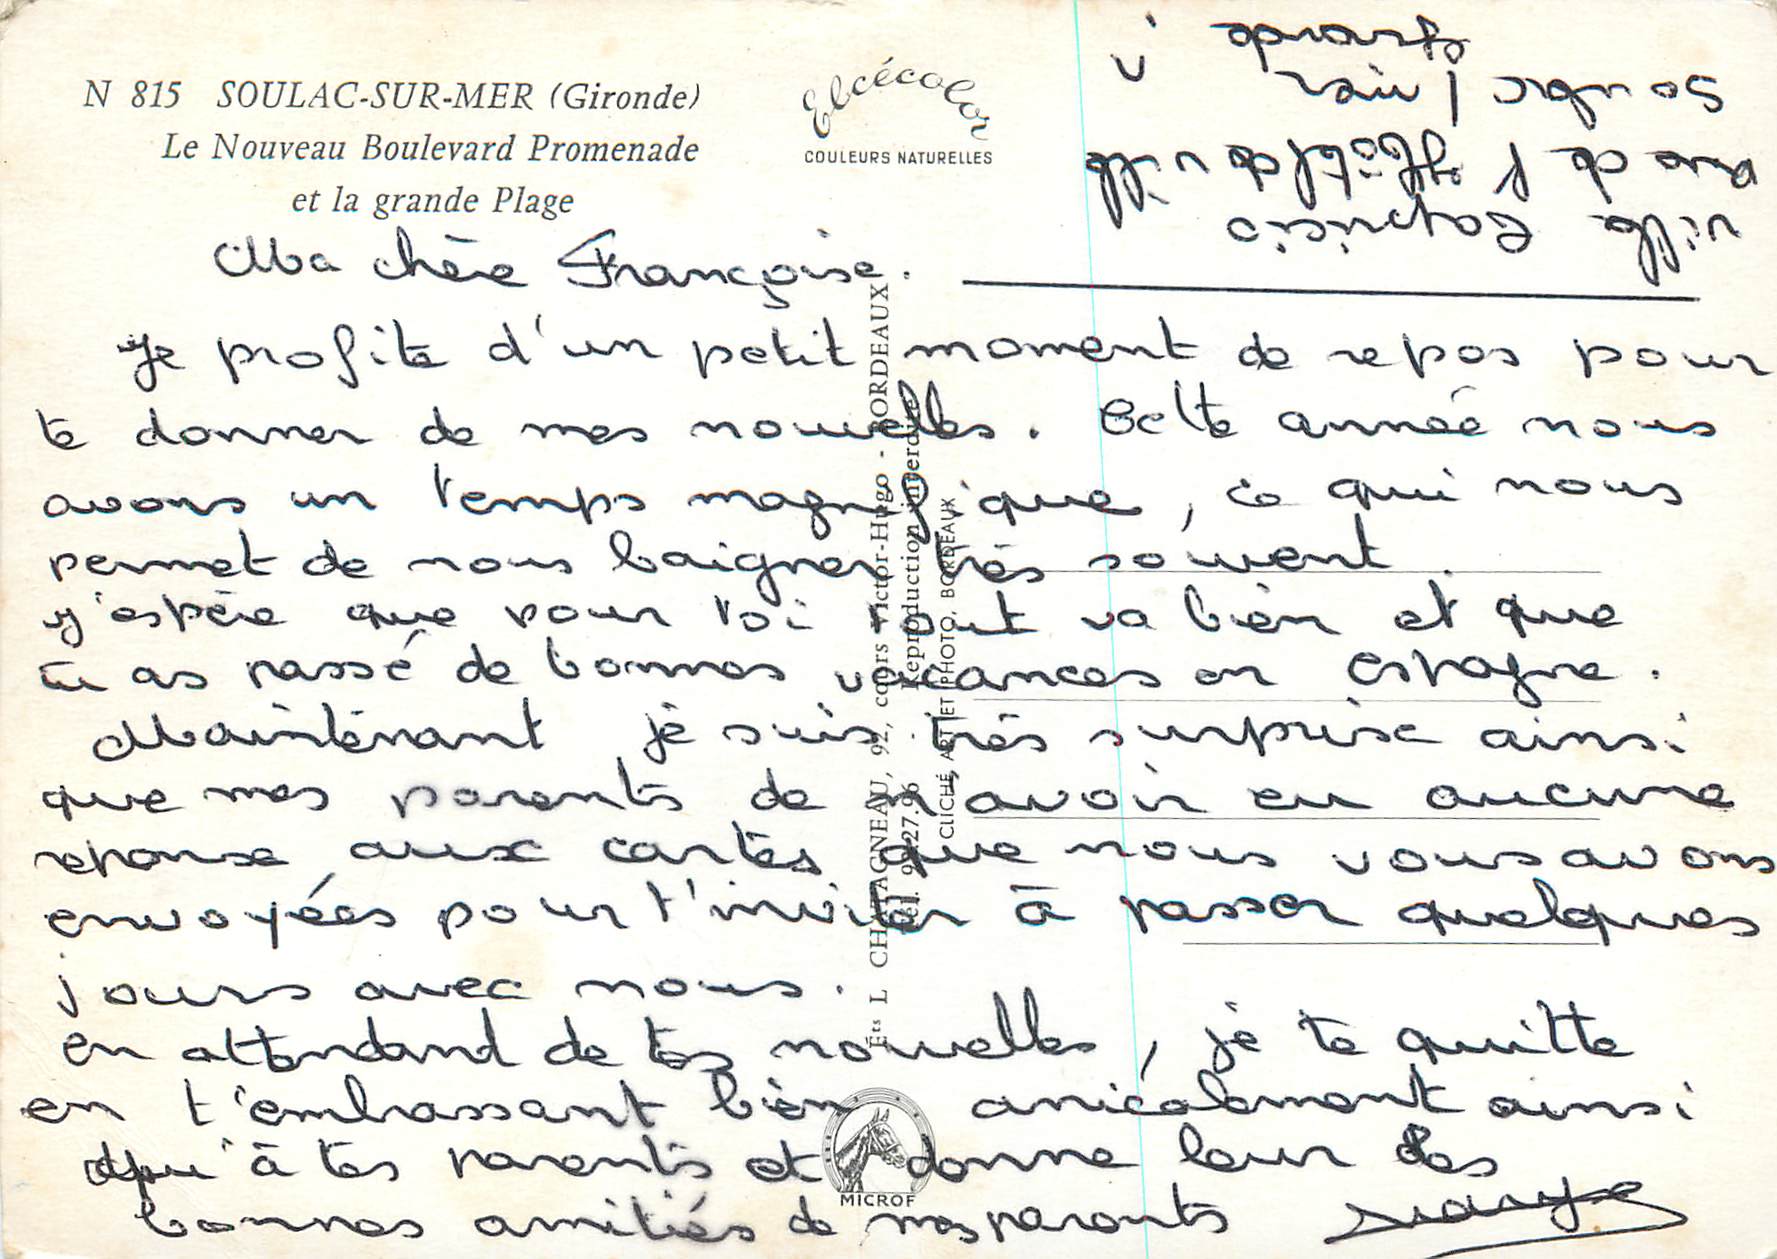 N 815 SOULAC-SUR-MER (Gironde)
Le Nouveau Boulevard Promenade
et la grande Plage
Elcécolor
COULEURS NATURELLES
Ma chère Françoise.
Je profite d'un petit moment de repos pour
te donner de mes nouvelles. Cette année nous
avons un temps magnifique, ce qui nous
permet de nous baigner très souvent.
J'espère que pour toi tout va bien et que
tu as passé de bonnes vacances en Espagne.
Maintenant je suis très surprise ainsi
que mes parents de n'avoir eu aucune
reponse aux cartes que nous vous avons
envoyées pour t'inviter à passer quelques
jours avec nous.
en attendand de tes nouvelles, je te quitte
en t'embrassant bien amicalement ainsi
qu'à tes parents et donne leur les
bonnes amitiés de mes parents
Villa
Rue de l'Hôtel de ville
Soulac / mer
Gironde
Éts L. CHATAGNEAU, 92, cours Victor-Hugo - BORDEAUX
Tél. 92.27.96 - Reproduction interdite
CLICHÉ ART ET PHOTO, BORDEAUX
MICROF